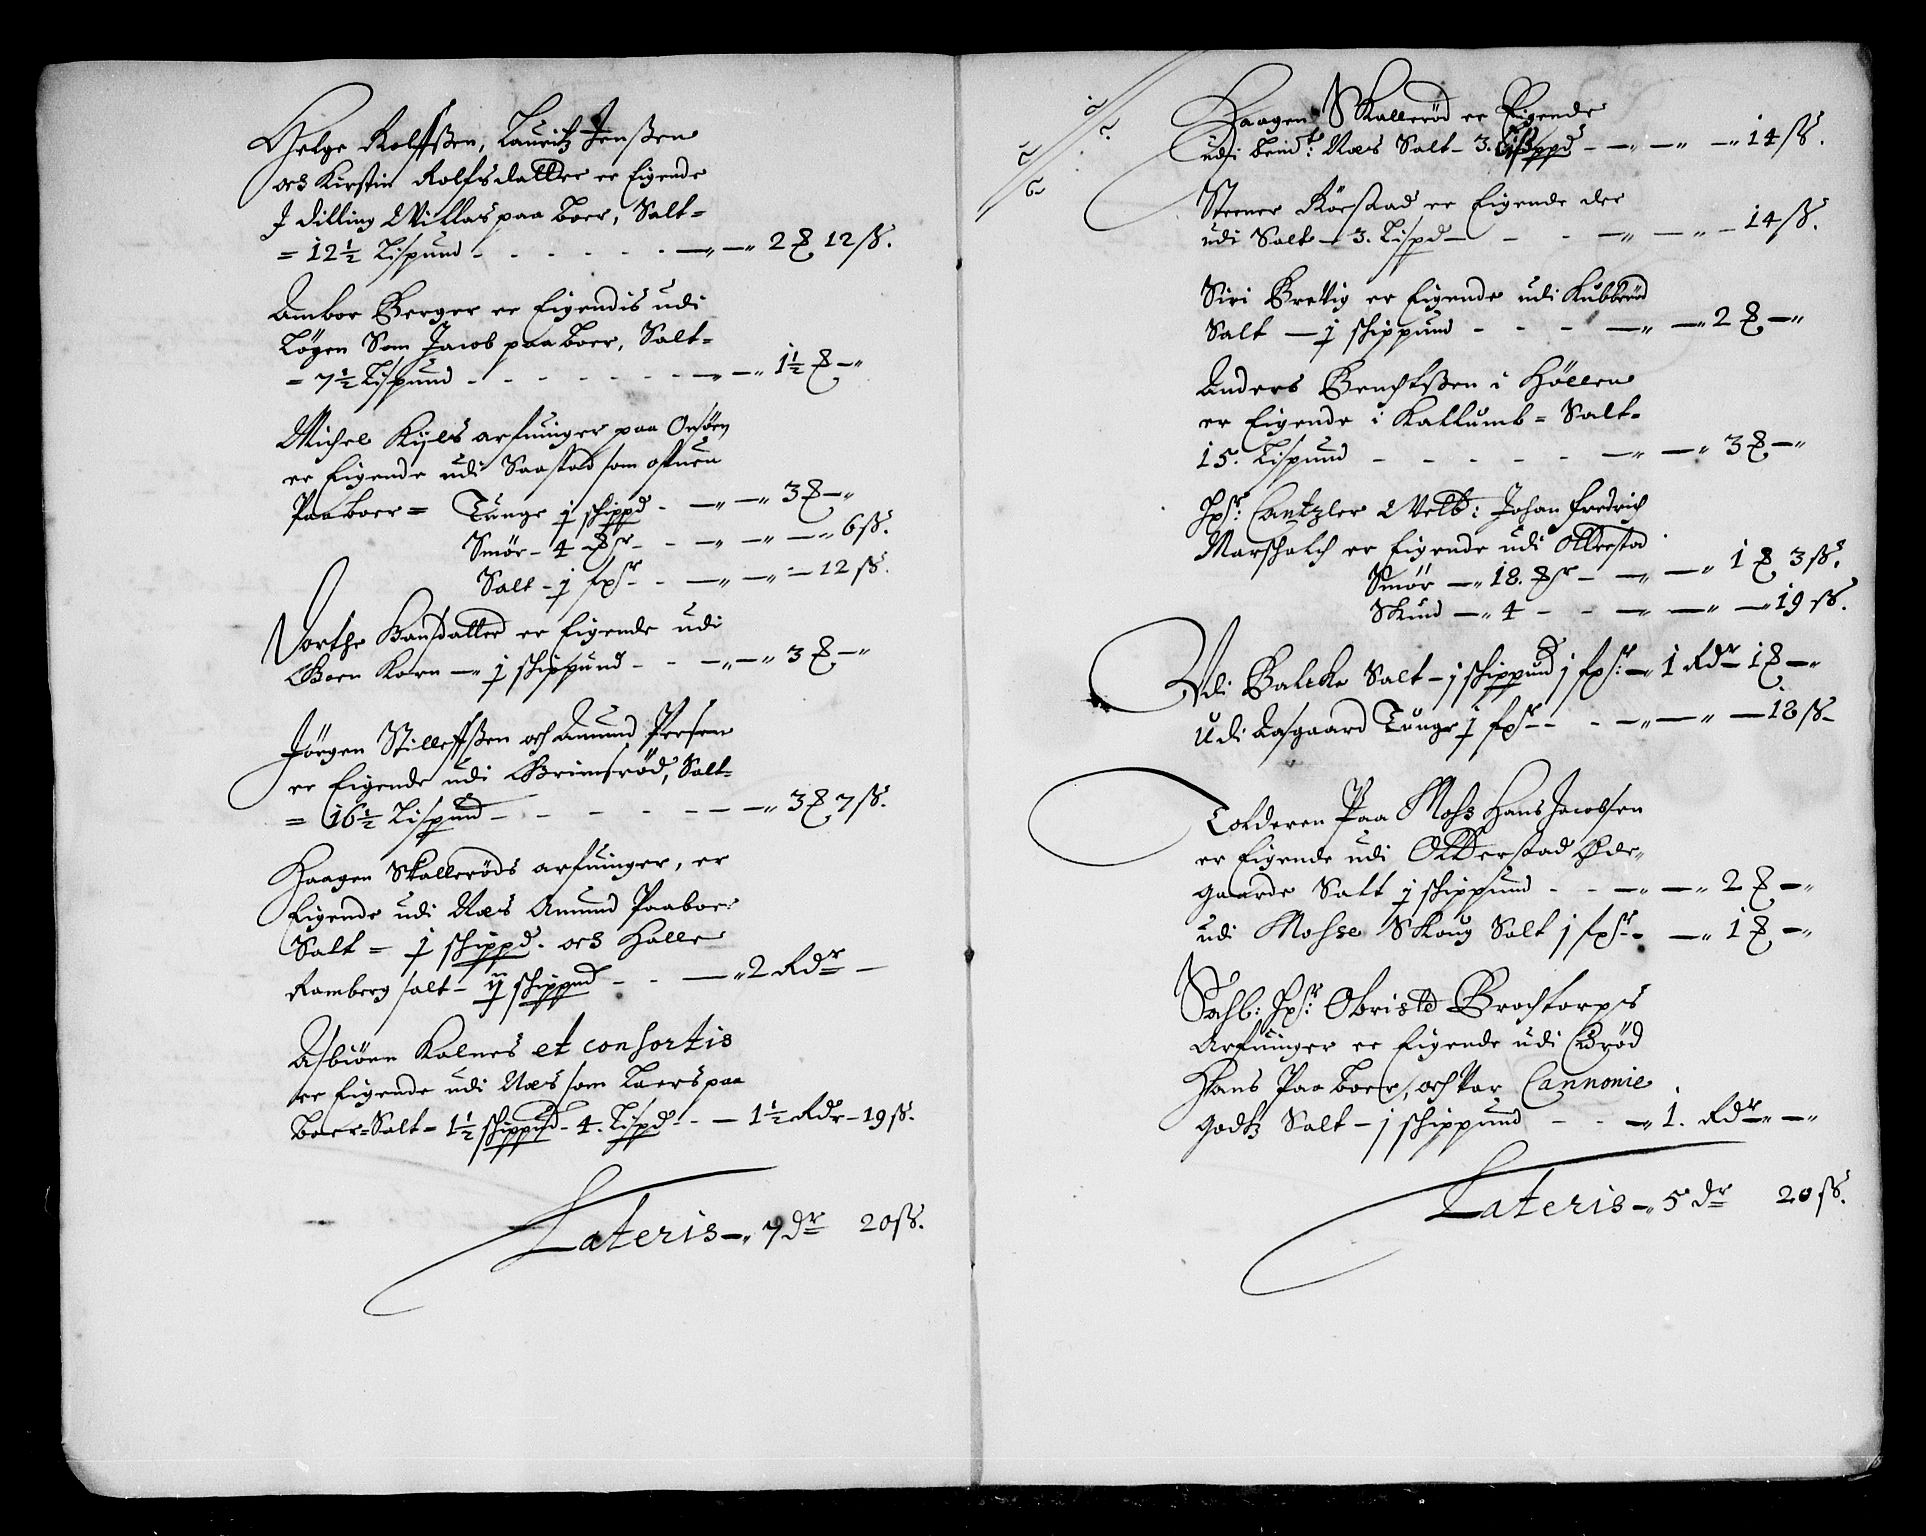 Helge Rolfsßen, Lauritz Jensßen
och Kirstin Rolfsdatter er Eigende
J Dilling Willas paa boer, Salt=
= 12½ Lispund - - - - - -"-" 2 ℔ 12 ß.
Ambor Berger er Eigendis udi
Løgen Som Jacob paa boer, Salt=
= 7½ Lispund - - - - - - -"-" 1½ ℔ -"
Michel Kijels arfuinger paa Onsøen
er Eigende udi Saastad som
Paaboer = Tunge j schippd - -"-" 3 ℔ -"
Smør - 4 ℔r - - -" -" -" 6 ß.
Salt - j fpr - - -" -" - 12 ß.
Dorthe Hansdatter er Eigende udi
Goen Korn -" j schippund - - -"-" 3 ℔ -"
Jörgen Stilleffsßen och Amund Persen
er Eigende udi Grimsrød, Salt=
= 16½ Lispund - - - - - - -" 3 ℔ 7 ß.
Haagen Skallerøds arfuinger, er
Eigende udi Næs Amund Paaboer
Salt = j schippd. och Halle
Ramberg salt - ij schippund - - -" 2 Rdr -
Asbiørn Kalnes et consortis
er Eigende udi Næs som Laers paa
boer = Salt - 1½ schippund - 4. Lispd - - 1½ Rdr - 19 ß.
Lateris -" 7 dr 20 ß.
Haagen Skallerød er Eigende
udi bemdt: Næs Salt - 3. Lispd - -" -" -" 14 ß.
Steener Rörstad er Eigende der
udi Salt - 3. Lispd - - - -" -" - 14 ß.
Siri Brevig er Eigende udi Kubberød
Salt - j schippund - - - -" -" 2 ℔ -"
Anders Bendtsßen i Høllen
er Eigende i Kallumb = Salt=
15. Lispund - - - - - -" -" 3 ℔ -"
Hpr: Cantzler Welb: Johan fredrich
Marschalch er Eigende udi Ollerstad
Smør -" 18. ℔r - -" -" 1 ℔ 3 ß.
Skind -" 4 - - -" -" -" 19 ß.
Udi Balcke Salt - j schippund j fpr: -" 1 Rdr 1 ℔ -"
Udi Aasgaard Tunge j fpr - - -" -" - 18 ß -
Tolderen Paa Moss Hans Jacobsen
er Eigende udi Ollerstad Øde=
gaarde Salt j schippund - - -" -" 2 ℔ -"
udi Mosse Skoug Salt j fpr - -" 1 ℔ -"
Sahl: Hpr: Obriste Brochtorps
Arfuinger er Eigende udi Brød
Hans Paa boer, och var Cannonie
godtz Salt - j schippund - - -" 1. Rdr" -"
Lateris -" 5 dr 20 ß.